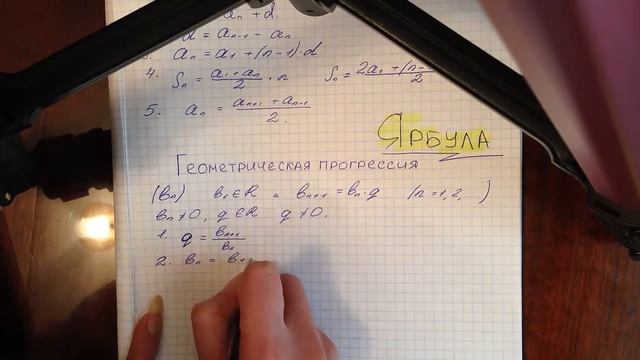 aₙ + d.
d = aₙ₋₁ - aₙ
3. aₙ = a₁ + (n-1)·d
4. Sₙ = (a₁ + aₙ)/2 · n Sₙ = 2a₁ + (n- /2
5. aₙ = (aₙ₊₁ + aₙ₋₁)/2.
ЯРБУЛА
Геометрическая прогрессия
(bₙ) b₁ ∈ R и bₙ₊₁ = bₙ·q (n=1,2,...)
bₙ ≠ 0, q ∈ R q ≠ 0.
1. q = bₙ₊₁/bₙ
2. bₙ = b₁